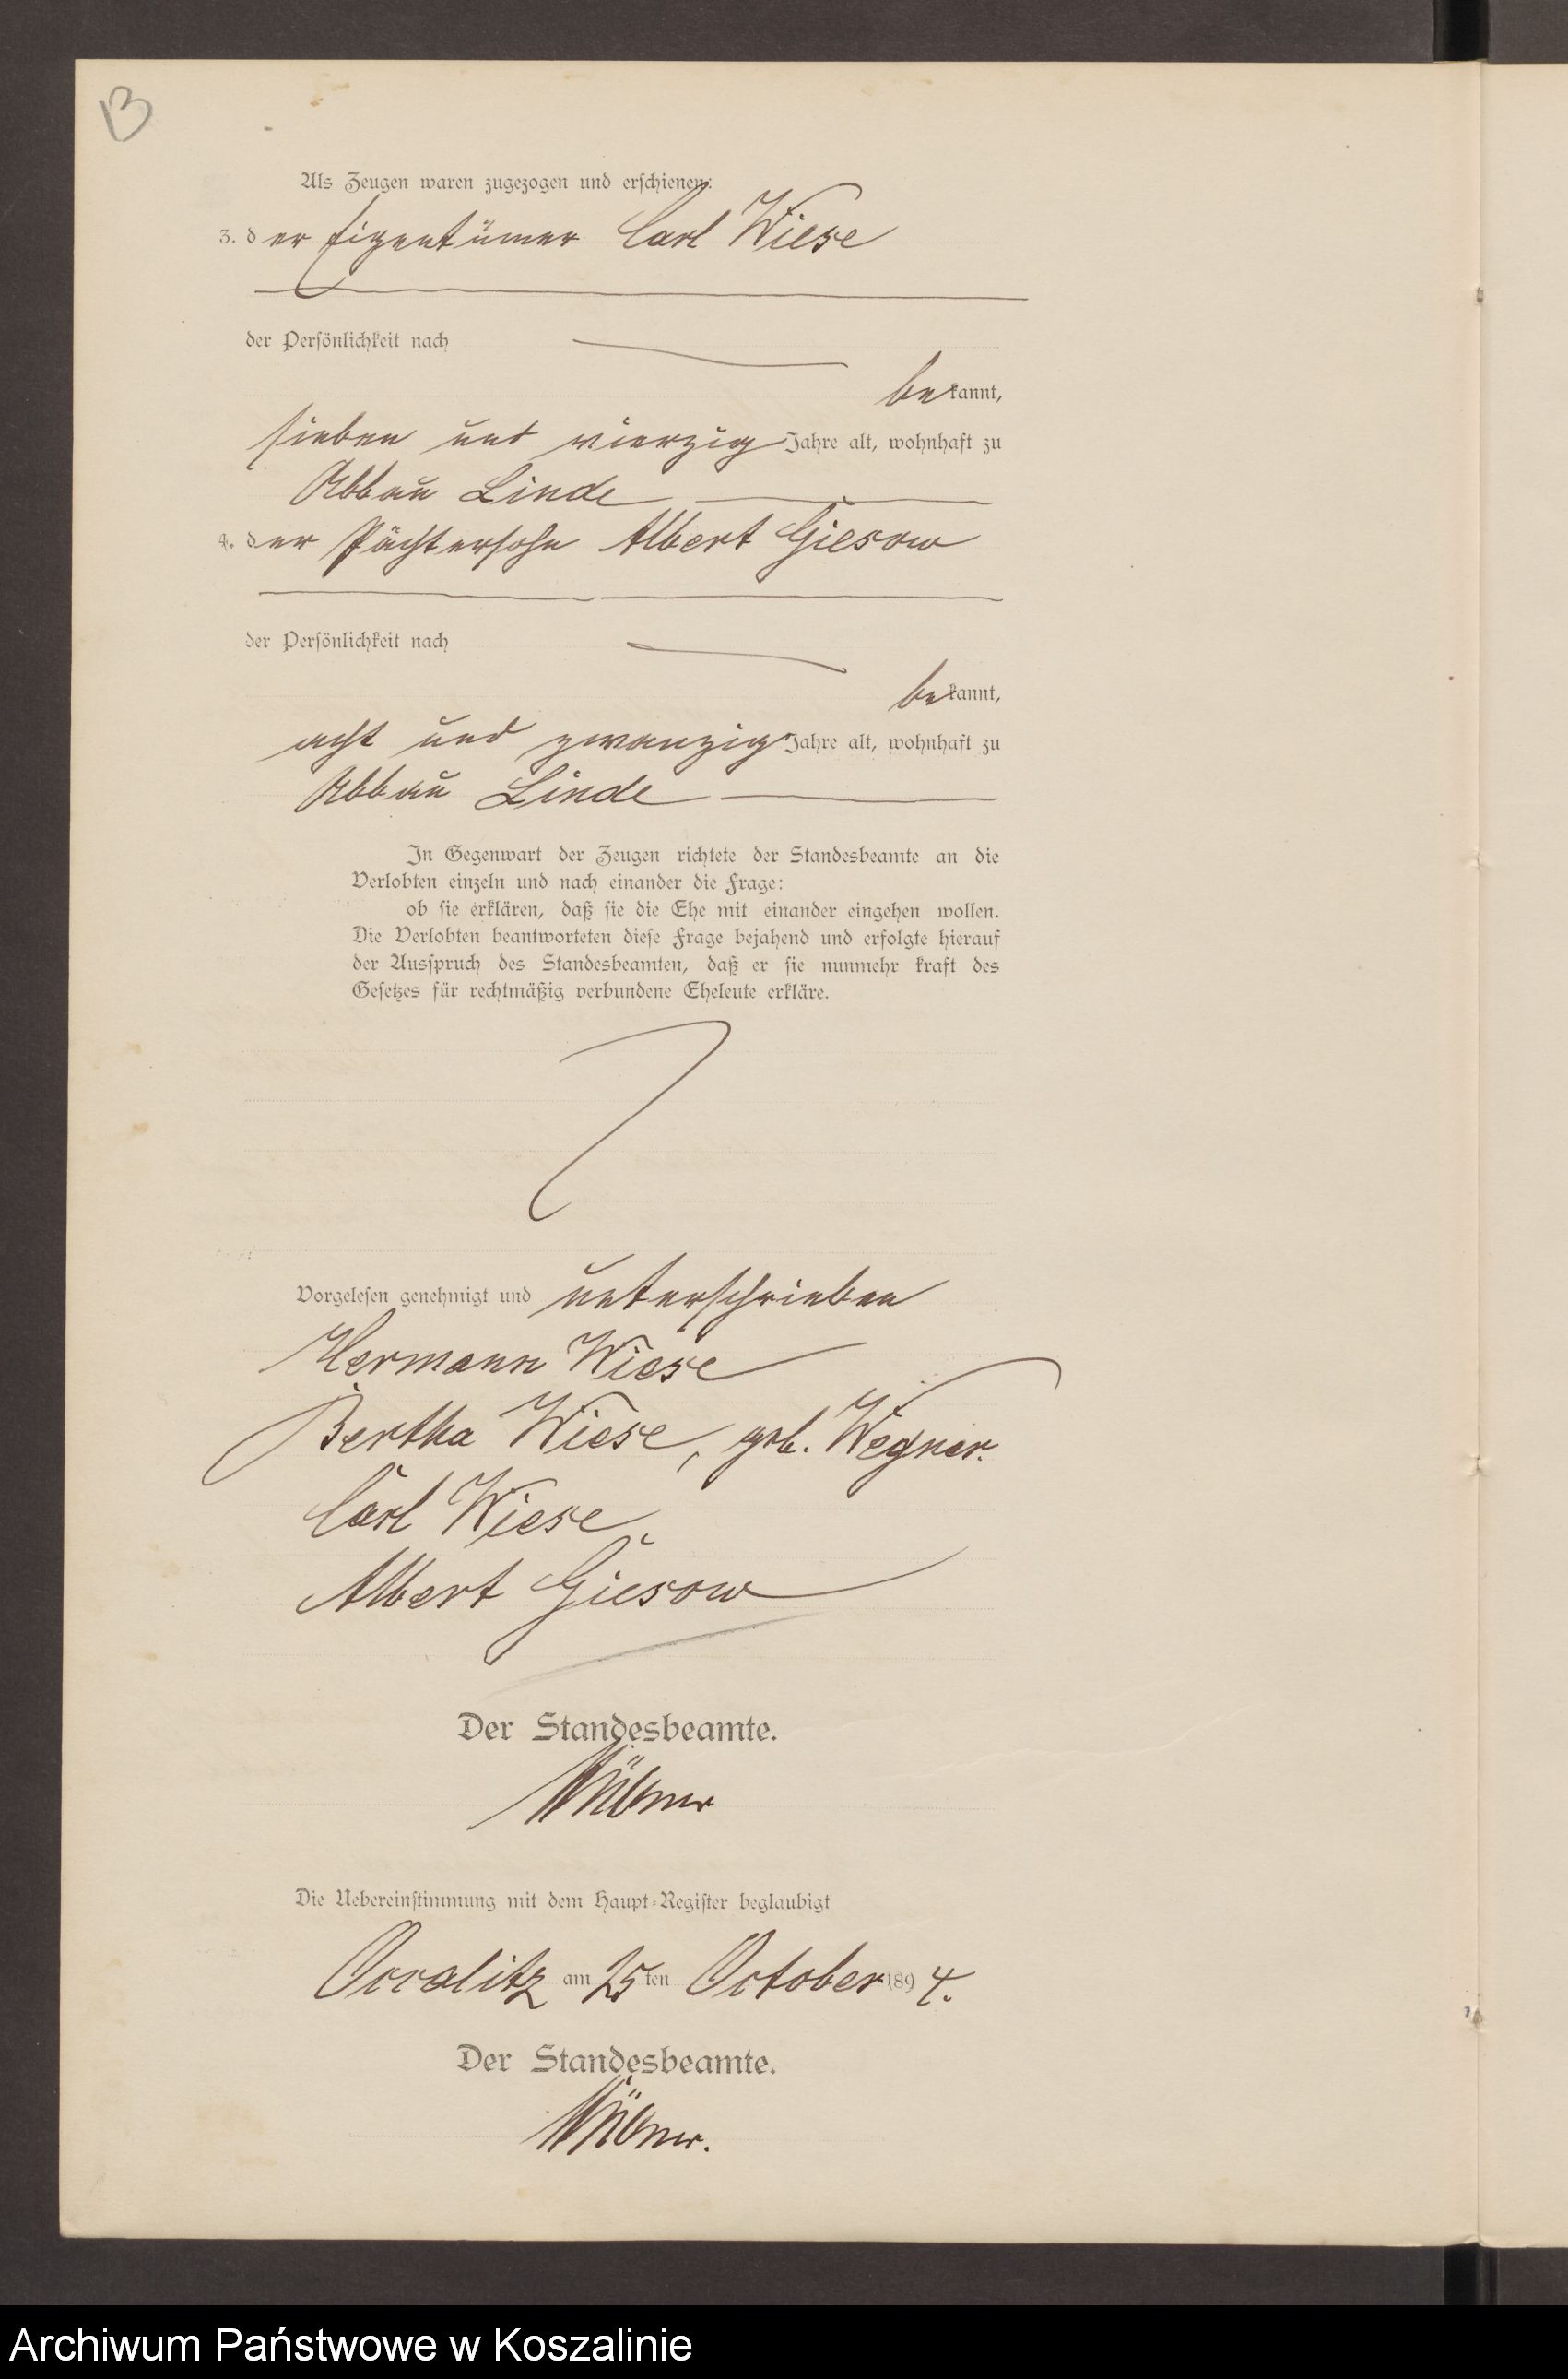 13
Als Zeugen waren zugezogen und erschienen:
3. der Eigentümer Carl Wiese
der Persönlichkeit nach
bekannt,
sieben und vierzig Jahre alt, wohnhaft zu
Abbau Linde
4. der Pächtersohn Albert Giesow
der Persönlichkeit nach
bekannt,
acht und zwanzig Jahre alt, wohnhaft zu
Abbau Linde
In Gegenwart der Zeugen richtete der Standesbeamte an die
Verlobten einzeln und nach einander die Frage:
ob sie erklären, daß sie die Ehe mit einander eingehen wollen.
Die Verlobten beantworteten diese Frage bejahend und erfolgte hierauf
der Ausspruch des Standesbeamten, daß er sie nunmehr kraft des
Gesetzes für rechtmäßig verbundene Eheleute erkläre.
Vorgelesen genehmigt und unterschrieben
Hermann Wiese
Bertha Wiese, geb. Wegner.
Carl Wiese
Albert Giesow
Der Standesbeamte.
Die Uebereinstimmung mit dem Haupt-Register beglaubigt
am 25ten October 1894.
Der Standesbeamte.
Archiwum Państwowe w Koszalinie